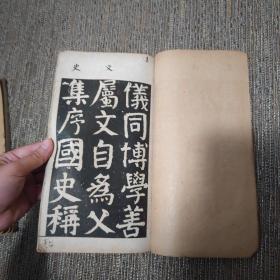 史文
儀同博學善
屬文自為父
集序國史稱